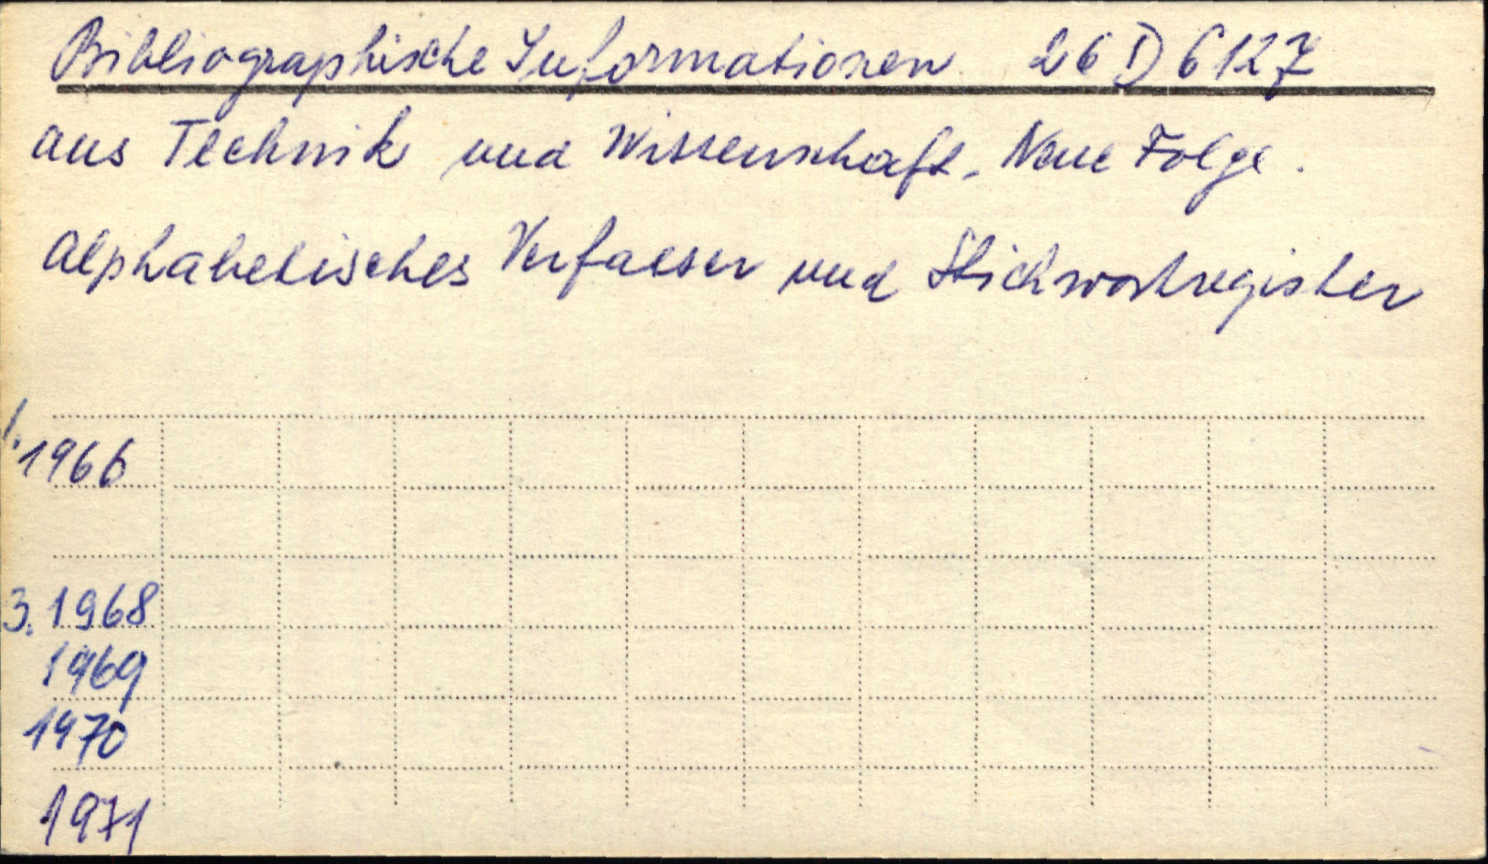 Bibliographische Informationen 26 D 6127
aus Technik und Wissenschaft. Neue Folge.
Alphabetisches Verfasser und Stichwortregister
1. 1966
3. 1968
1969
1970
1971